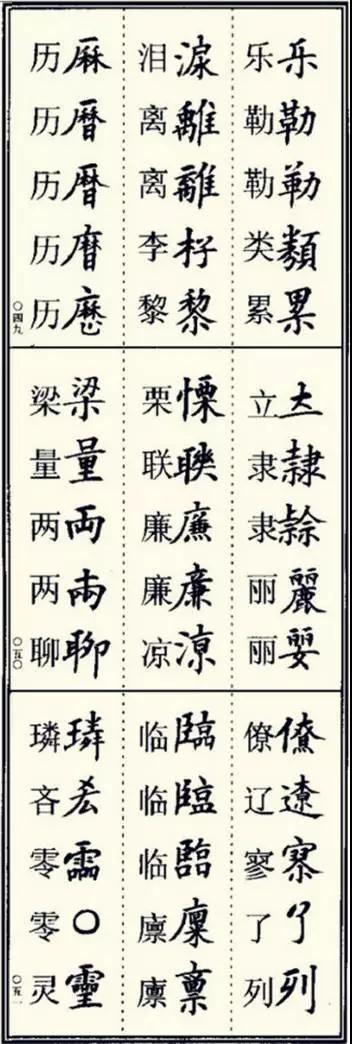 乐 乐
勒 勒
勒 勒
类 類
累 累
泪 淚
离 離
离 離
李 杍
黎 黎
历 厤
历 曆
历 曆
历
历
〇四九
立
隶 隷
隶
丽 麗
丽
栗 慄
联 聨
廉 廉
廉 廉
凉 涼
梁 梁
量 量
两 両
两
聊 聊
〇五〇
僚 僚
辽 遼
寥
了 了
列 列
临 臨
临 臨
临 臨
廪 廩
廪 禀
璘 璘
吝
零
零 〇
灵 靈
〇五一